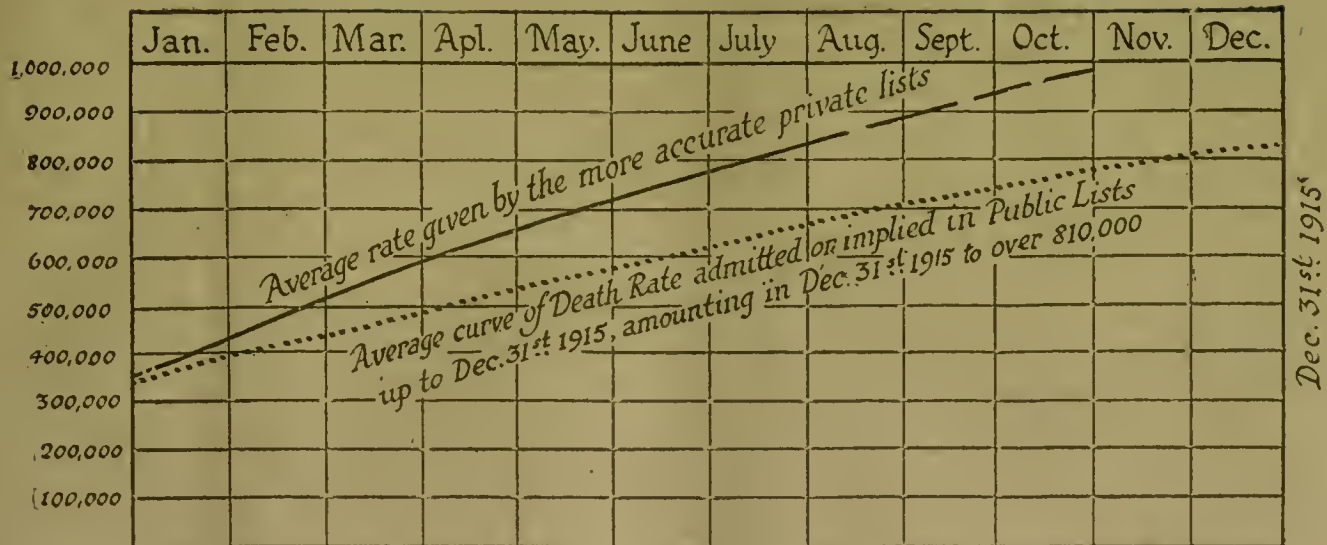 Jan. Feb. Mar. Apl. May. June July Aug. Sept. Oct. Nov. Dec.
1,000,000
900,000
800,000
700,000
600,000
500,000
400,000
300,000
200,000
100,000
Average rate given by the more accurate private lists
Average curve of Death Rate admitted or implied in Public Lists
up to Dec. 31st 1915, amounting in Dec. 31st 1915 to over 810,000
Dec. 31st 1915